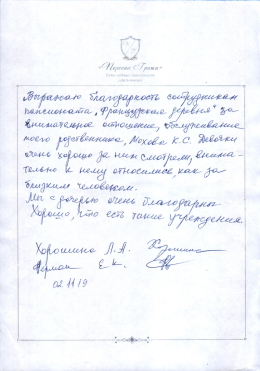 Выражаю благодарность сотрудникам
пансионата „Французская деревня" за
внимательное отношение, обслуживание
моего родственника, Мохова К.С. Девочки
очень хорошо за ним смотрели, внима-
тельно к нему относились, как за
близким человеком.
Мы с дочерью очень благодарны
Хорошо, что есть такие учреждения
Хорошилова Л.А.
Е К.
02.11.19